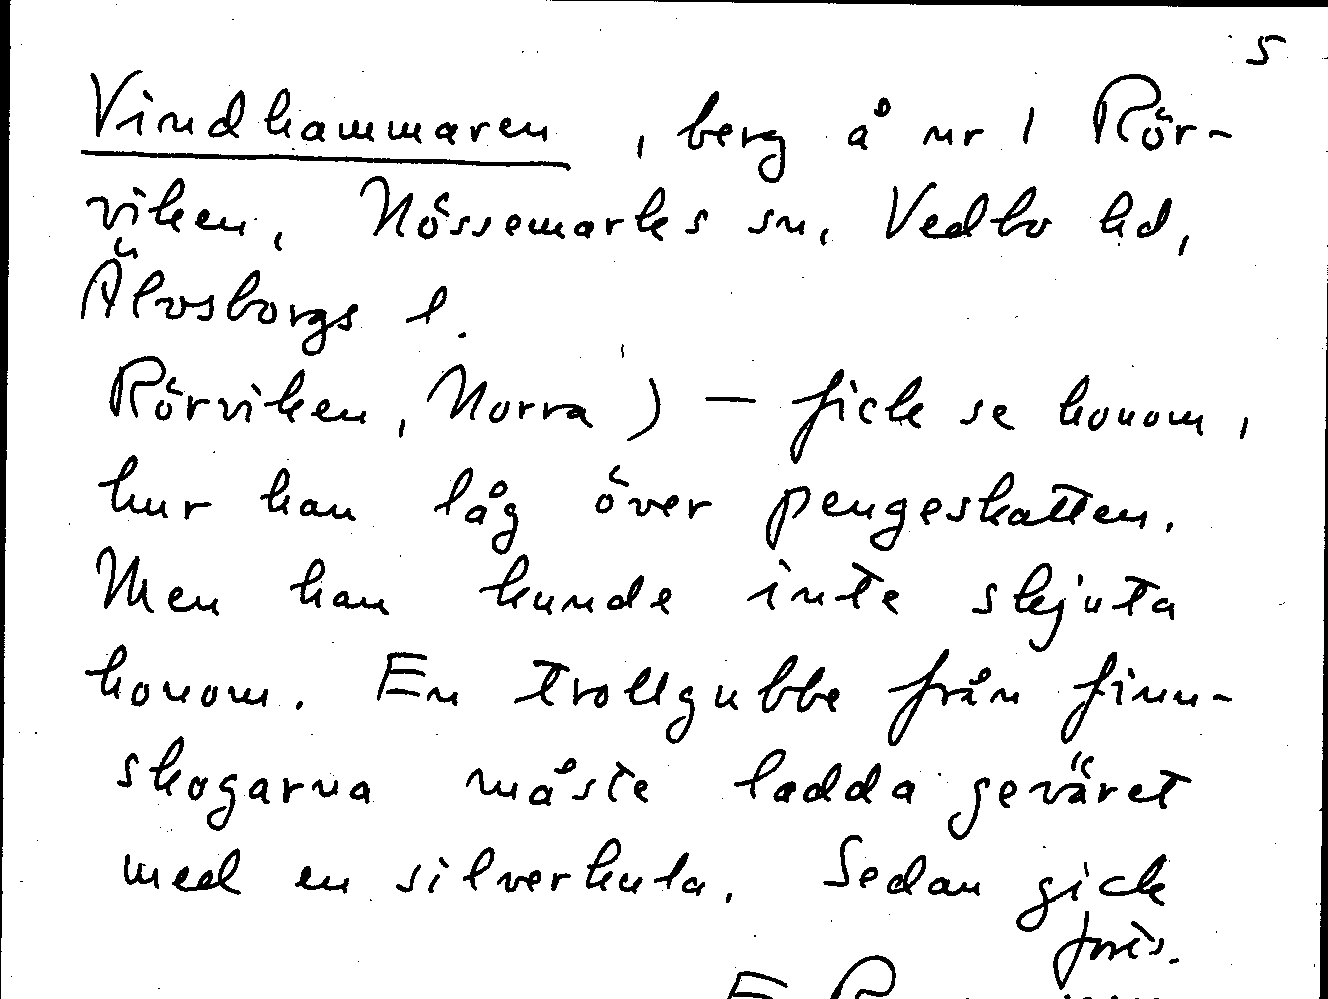 5
Vindhammaren, berg å nr 1 Rör-
viken, Nössemarks sn, Vedbo hd,
Älvsborgs l.
Rörviken, Norra) — fick se honom,
hur han låg över pengeskatten.
Men han kunde inte skjuta
honom. En trollgubbe från finn-
skogarna måste ladda geväret
med en silverkula. Sedan gick
forts.